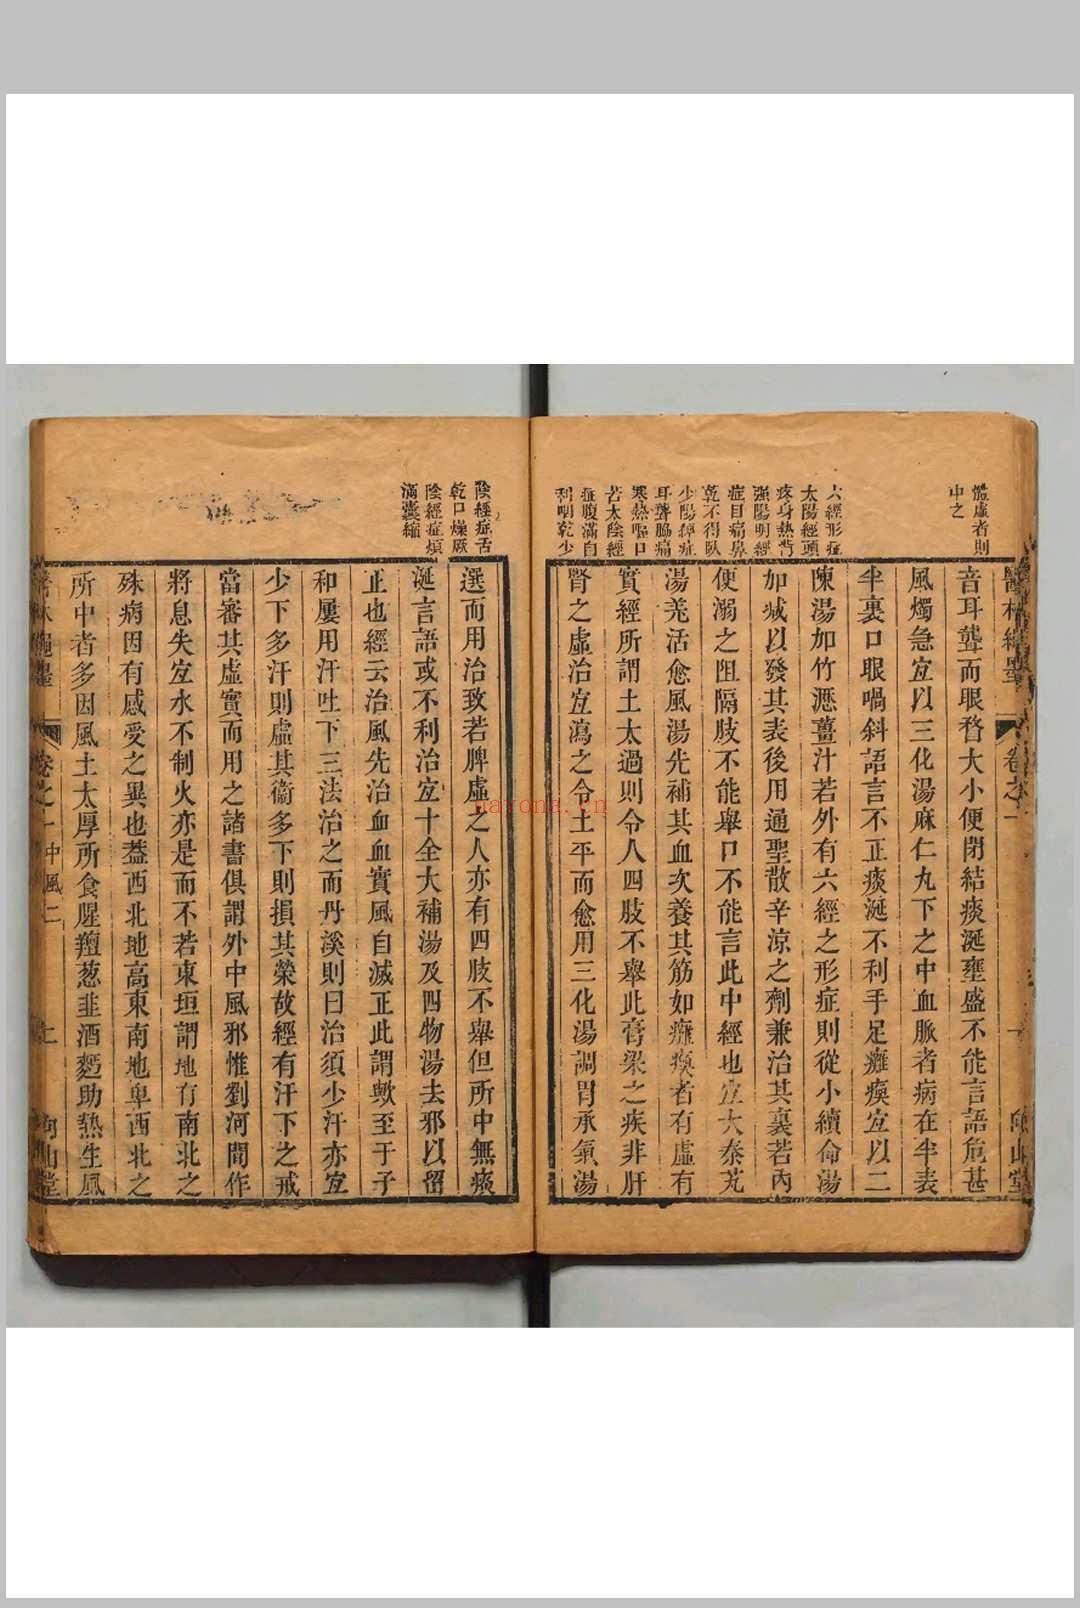 體虛者則
中之
六經形症
太陽經頭
疼身熱背
强陽明經
症目痛鼻
乾不得臥
少陽經症
耳聾脇痛
寒熱嘔口
苦太陰經
症腹滿自
利咽乾少
醫林繩墨 卷之一 向山堂
音耳聾而眼瞀大小便閉結痰涎壅盛不能言語危甚
風燭急宜以三化湯麻仁九下之中血脈者病在半表
半裏口眼喎斜語言不正痰涎不利手足癱瘓宜以二
陳湯加竹瀝薑汁若外有六經之形症則從小續命湯
加减以發其表後用通聖散辛涼之劑兼治其裏若內
便溺之阻隔肢不能舉口不能言此中經也宜大秦艽
湯羌活愈風湯先補其血次養其筋如癱瘓者有虛有
實經所謂土太過則令人四肢不舉此膏粱之疾非肝
腎之虛治宜瀉之令土平而愈用三化湯調胃承氣湯
陰經症舌
乾口燥厥
陰經症煩
滿囊縮
選而用治致若脾虛之人亦有四肢不舉但所中無痰
涎言語或不利治宜十全大補湯及四物湯去邪以留
正也經云治風先治血血實風自滅正此謂歟至于子
和屢用汗吐下三法治之而丹溪則曰治須少汗亦宜
少下多汗則虛其衞多下則損其榮故經有汗下之戒
當審其虛實而用之諸書俱謂外中風邪惟劉河間作
將息失宜水不制火亦是而不若東垣謂地有南北之
殊病因有感受之異也葢西北地高東南地卑西北之
所中者多因風土太厚所食腥羶葱韭酒麪助熱生風
醫林繩墨 卷之一中風二 向山堂
nayona.cn